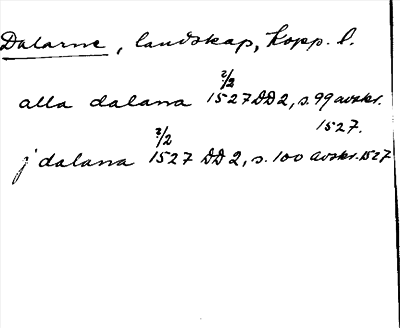 Dalarne, landskap, Kopp. l.
2/2
alla dalana 1527 DD 2, s. 99 avskr.
1527.
2/2
j dalana 1527 DD 2, s. 100 avskr. 1527